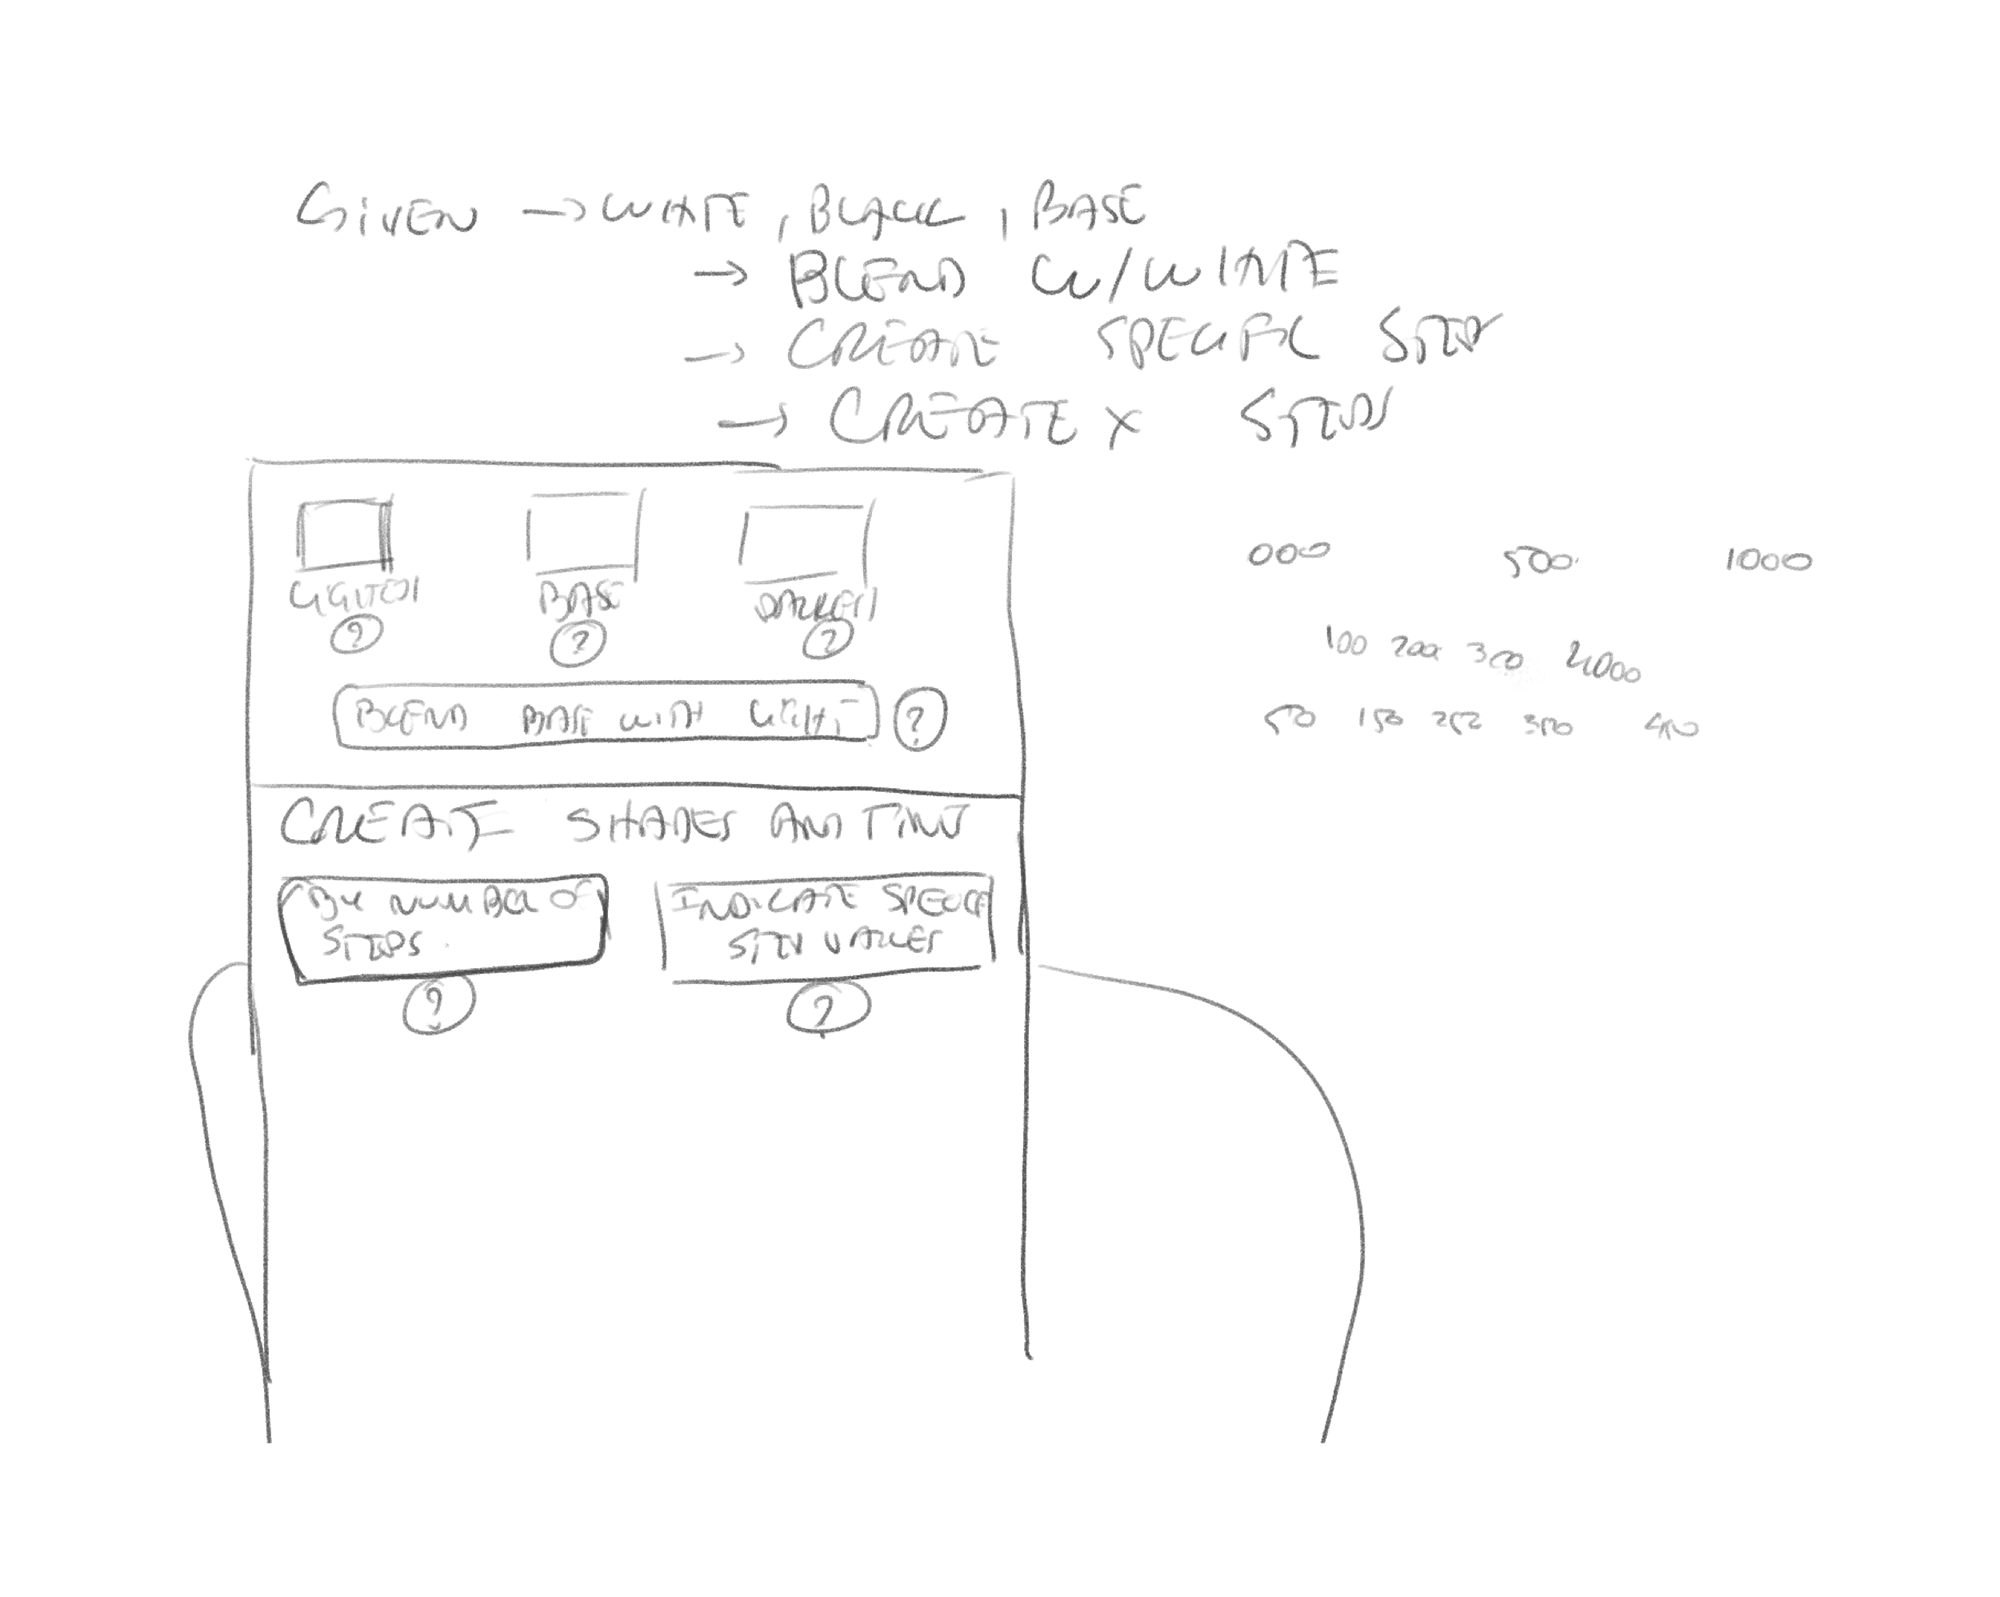 GIVEN → WHITE, BLACK, BASE
→ BLEND W/WHITE
→ CREATE SPECIFIC STEP
→ CREATE X STEPS
LIGHTEST BASE DARKEST
? ? ?
BLEND BASE WITH LIGHT ?
CREATE SHADES AND TINT
BY NUMBER OF
STEPS.
INDICATE SPECIFIC
STEP VALUES
? ?
000 500 1000
100 200 300
50 150 250 350 450